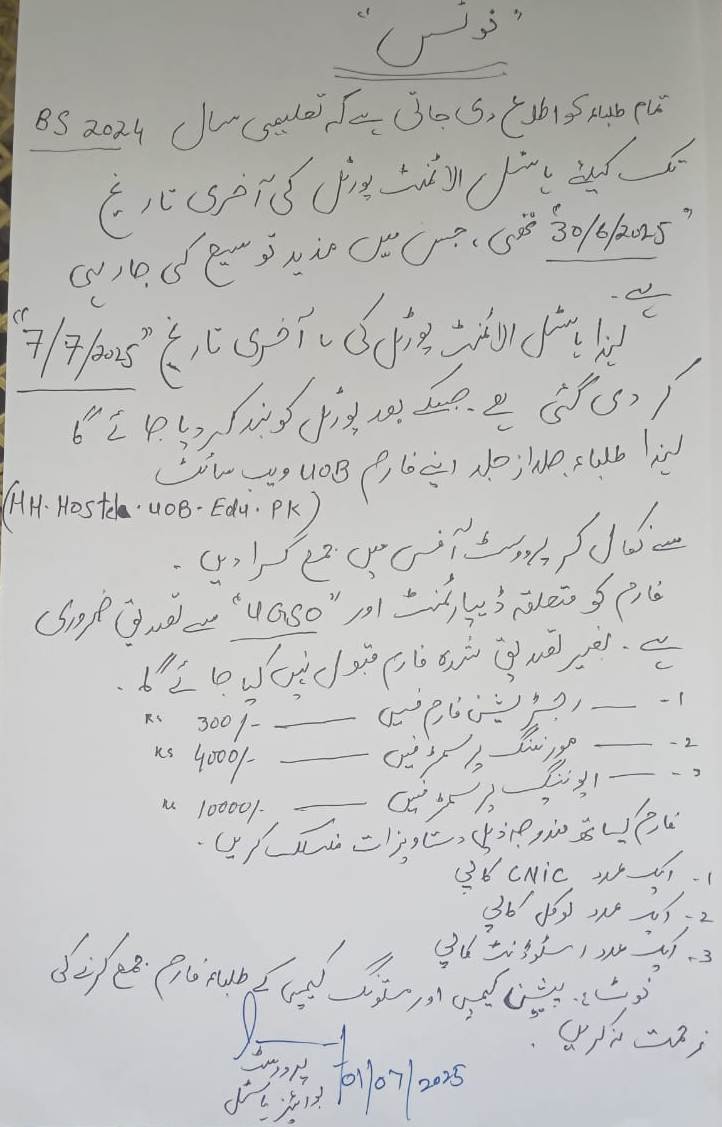 "نوٹس"
تمام طلباء کو اطلاع دی جاتی ہے کہ تعلیمی سال BS 2024
تک کیلئے ہاسٹل الاٹمنٹ پورٹل کی آخری تاریخ
"30/6/2025" تھی، جس میں مزید توسیع کی جا رہی
ہے۔
لہذا ہاسٹل الاٹمنٹ پورٹل کی آخری تاریخ "7/7/2025"
کر دی گئی ہے۔ جسکے بعد پورٹل کو بند کر دیا جائے گا
لہذا طلباء جلد از جلد اپنے فارم UOB ویب سائٹ
(HH.Hostels.UOB.Edu.PK)
سے نکال کر پرووسٹ آفس میں جمع کرا دیں۔
فارم کو متعلقہ ڈیپارٹمنٹ اور "UGSO" سے تصدیق ضروری
ہے۔ بغیر تصدیق شدہ فارم قبول نہیں کیا جائے گا۔
1- — رجسٹریشن فارم فیس — Rs 300/-
2- — مورننگ پر سمسٹر فیس — Rs 4000/-
3- — ایوننگ پر سمسٹر فیس — Rs 10000/-
فارم کیساتھ مندرجہ ذیل دستاویزات منسلک کریں۔
1- ایک عدد CNIC کاپی
2- ایک عدد لوکل کاپی
3- ایک عدد اسٹوڈنٹ کاپی
نوٹ:۔ پشین کیمپس اور مستونگ کیمپس کے طلباء فارم جمع کرنے کی
زحمت نہ کریں۔
پرووسٹ
بوائز ہاسٹل
01/07/2025